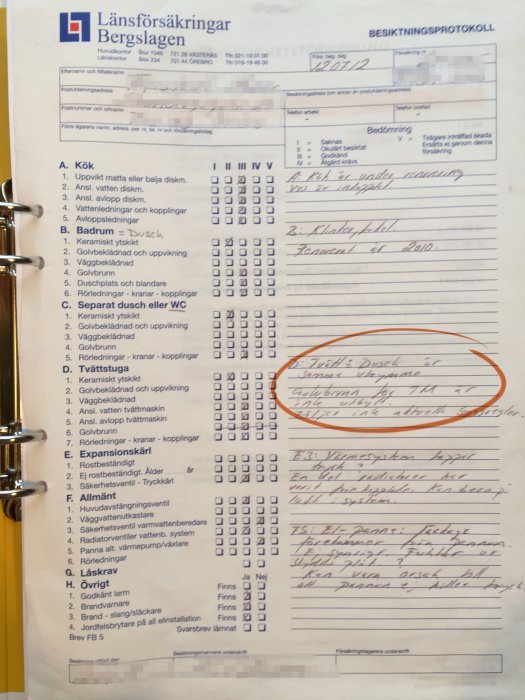 Länsförsäkringar
Bergslagen
BESIKTNINGSPROTOKOLL
Huvudkontor Box 1046 721 26 VÄSTERÅS Tfn 021-19 01 00
Länskontor Box 234 751 44 ÖREBRO Tfn 019-19 46 00
Efternamn och tilltalsnamn
Förs. beg. dag
120712
Försäkring nr
Postutdelningsadress
Besiktningsadress (om annan än postutdelningsadress)
Postnummer och ortnamn
Telefon arbete
Telefon bostad
-
-
Förre ägarens namn, adress, per. nr, tel. nr och försäkringsbolag
Bedömning
I = Saknas
II = Okulärt besiktat
III = Godkänd
IV = Åtgärd krävs
V = Tidigare inträffad skada
Ersätts ej genom denna
försäkring
A. Kök I II III IV V
1. Uppvikt matta eller balja diskm.
2. Ansl. vatten diskm.
3. Ansl. avlopp diskm.
4. Vattenledningar och kopplingar
5. Avloppsledningar
B. Badrum = Dusch
1. Keramiskt ytskikt
2. Golvbeklädnad och uppvikning
3. Väggbeklädnad
4. Golvbrunn
5. Duschplats och blandare
6. Rörledningar - kranar - kopplingar
C. Separat dusch eller WC
1. Keramiskt ytskikt
2. Golvbeklädnad och uppvikning
3. Väggbeklädnad
4. Golvbrunn
5. Rörledningar - kranar - kopplingar
D. Tvättstuga
1. Keramiskt ytskikt
2. Golvbeklädnad och uppvikning
3. Väggbeklädnad
4. Ansl. vatten tvättmaskin
5. Ansl. avlopp tvättmaskin
6. Golvbrunn
7. Rörledningar - kranar - kopplingar
E. Expansionskärl
1. Rostbeständigt
2. Ej rostbeständigt. Ålder år
3. Säkerhetsventil - Tryckkärl
F. Allmänt
1. Huvudavstängningsventil
2. Väggvattenutkastare
3. Säkerhetsventil varmvattenberedare
4. Radiatorventiler vattenb. system
5. Panna alt. värmepump/växlare
6. Rörledningar
G. Låskrav Ja Nej
H. Övrigt Finns
1. Godkänt larm Finns
2. Brandvarnare Finns
3. Brand - slang/släckare Finns
4. Jordfelsbrytare på all elinstallation Finns
Brev FB 5 Svarsbrev lämnat
A: Kök är under renovering
vvs är inkopplat.
B: Klinker, kakel.
Renoverat år 2010.
D: Tvätt = Dusch är
samma utrymme
Golvbrunn för TM är
inte utbytt
inte aktuella
E3: Värmesystem tappar
tryck?
En del radiatorer har
varit
luft i system.
F5: El-Panna: Läckage
förekommer från pannan.
Ej synligt. Fuktar ur
skyddsplåt?
Kan vara orsak till
att pannan ej håller tryck.
Besiktning utförd den
Besiktningsmannens underskrift
Försäkringstagarens underskrift